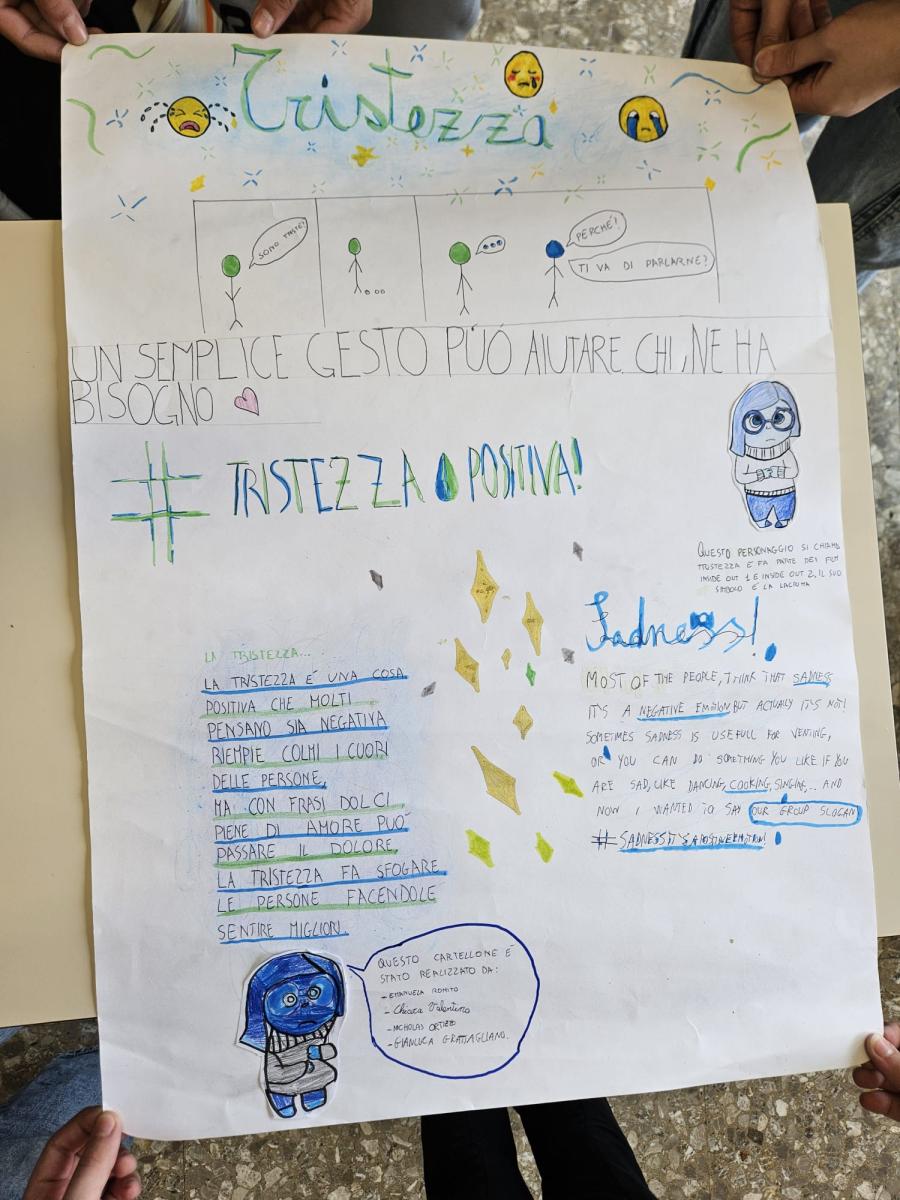 Tristezza
SONO TRISTE!
...
...
PERCHÉ?
TI VA DI PARLARNE?
UN SEMPLICE GESTO PUÓ AIUTARE CHI NE HA
BISOGNO
# TRISTEZZA POSITIVA!
QUESTO PERSONAGGIO SI CHIAMA
TRISTEZZA E FA PARTE DEI FILM
INSIDE OUT 1 E INSIDE OUT 2, IL SUO
SIMBOLO É LA LACRIMA
LA TRISTEZZA...
LA TRISTEZZA É UNA COSA
POSITIVA CHE MOLTI
PENSANO SIA NEGATIVA
RIEMPIE COLMI I CUORI
DELLE PERSONE,
MA CON FRASI DOLCI
PIENE DI AMORE PUÓ
PASSARE IL DOLORE.
LA TRISTEZZA FA SFOGARE
LE PERSONE FACENDOLE
SENTIRE MIGLIORI.
Sadness!
MOST OF THE PEOPLE, THINK THAT SADNESS
IT'S A NEGATIVE EMOTION BUT ACTUALLY IT'S NOT!
SOMETIMES SADNESS IS USEFULL FOR VENTING,
OR YOU CAN DO SOMETHING YOU LIKE IF YOU
ARE SAD, LIKE DANCING, COOKING, SINGING,... AND
NOW I WANTED TO SAY OUR GROUP SLOGAN
# SADNESSIT'SAPOSITIVEEMOTION!
QUESTO CARTELLONE É
STATO REALIZZATO DA:
- EMANUELA ROMITO
- Chiara Valentino
- NICHOLAS
- GIANLUCA GRATTAGLIANO.